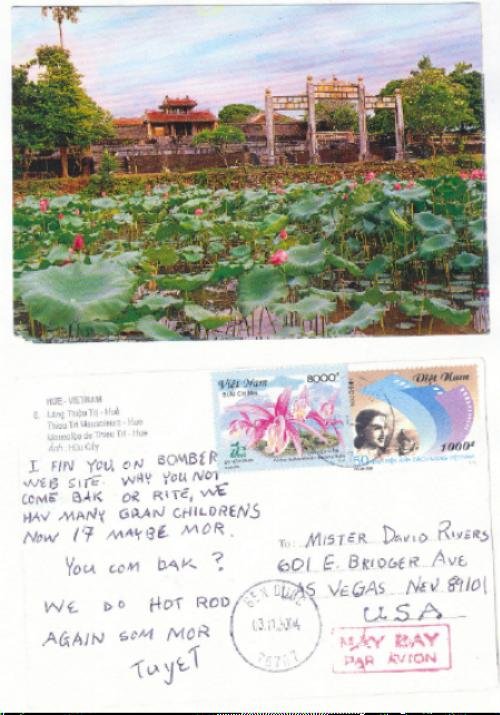 HUẾ - VIETNAM
Lăng Thiệu Trị - Huế
Thieu Tri Mausoleum - Hue
Mausolée de Thieu Tri - Hue
Việt Nam
8000đ
BƯU CHÍNH
Việt Nam
1000đ
50
I FIN YOU ON BOMBER
WEB SITE. WHY YOU NOT
COME BAK OR RITE, WE
HAV MANY GRAN CHILDRENS
NOW 17 MAYBE MOR.
YOU COM BAK?
WE DO HOT ROD
AGAIN SOM MOR
TUYET
To: MISTER DAVID RIVERS
601 E. BRIDGER AVE
LAS VEGAS NEV 89101
USA
MAY BAY
PAR AVION